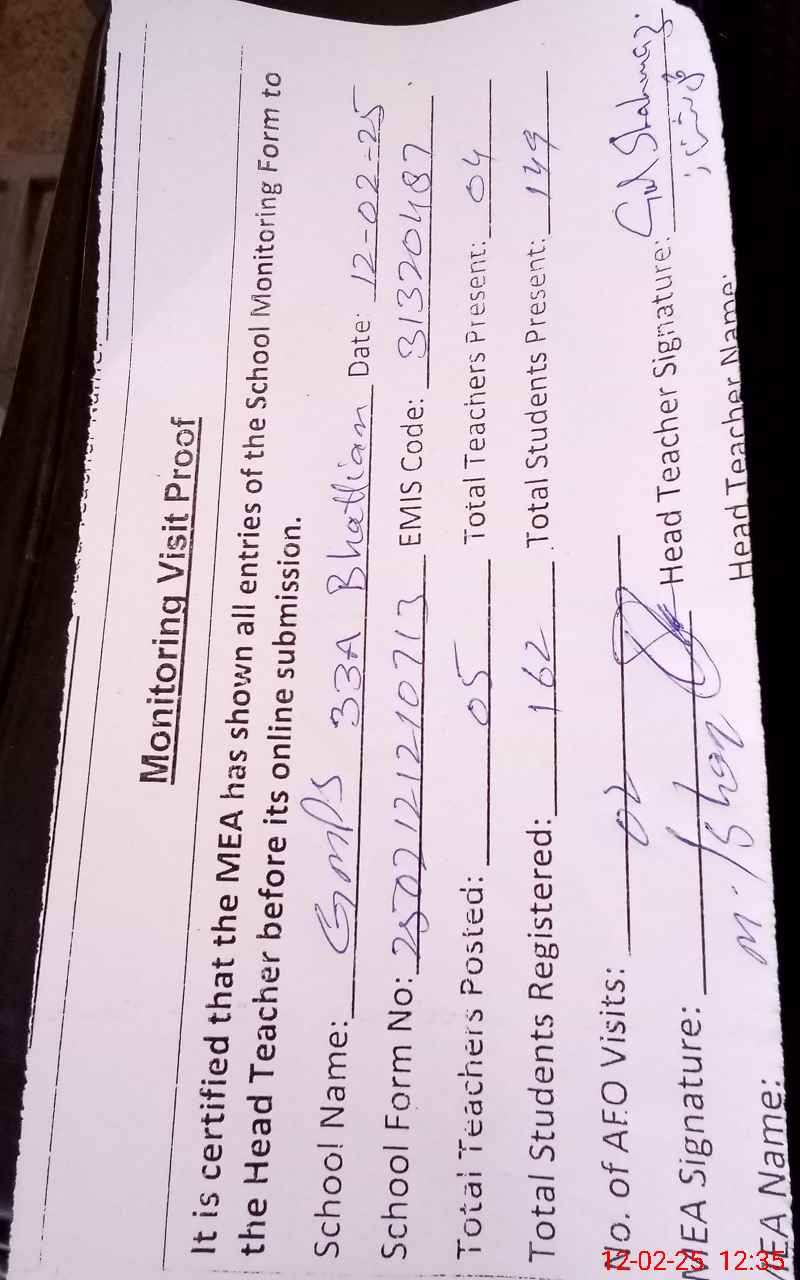 Monitoring Visit Proof
It is certified that the MEA has shown all entries of the School Monitoring Form to
the Head Teacher before its online submission.
School Name: GMPS 33A Bhattian Date: 12-02-25
School Form No: 250212121210713 EMIS Code: 31320487
Total Teachers Posted: 05 Total Teachers Present: 04
Total Students Registered: 162 Total Students Present: 149
No. of AEO Visits: 02
MEA Signature: Head Teacher Signature: Gul Shahnaz
MEA Name: M. Head Teacher Name:
12-02-25 12:35